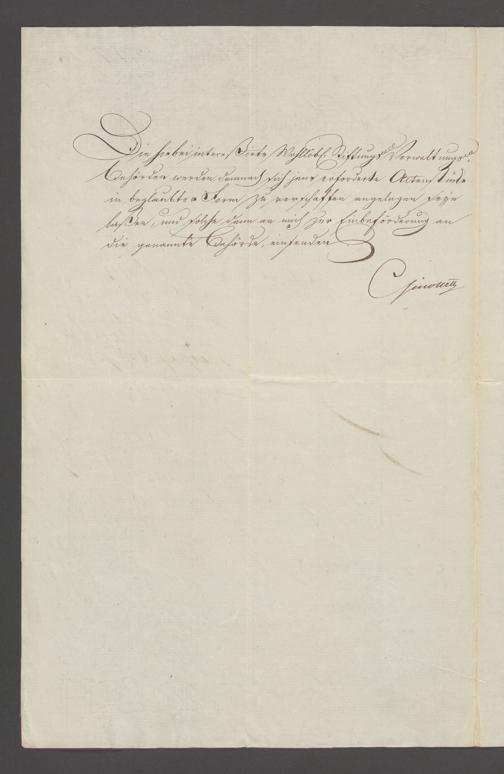 Die hierbei interessirte Wohllöbl. Stiftungs Verwaltungs
Behörden werden demnach sich jene erforderte Actenstücke
in beglaubter Form zu verschaffen angelegen seyn
lassen, und solche dann an mich zur Einbeförderung an
die genannte Behörde, einsenden